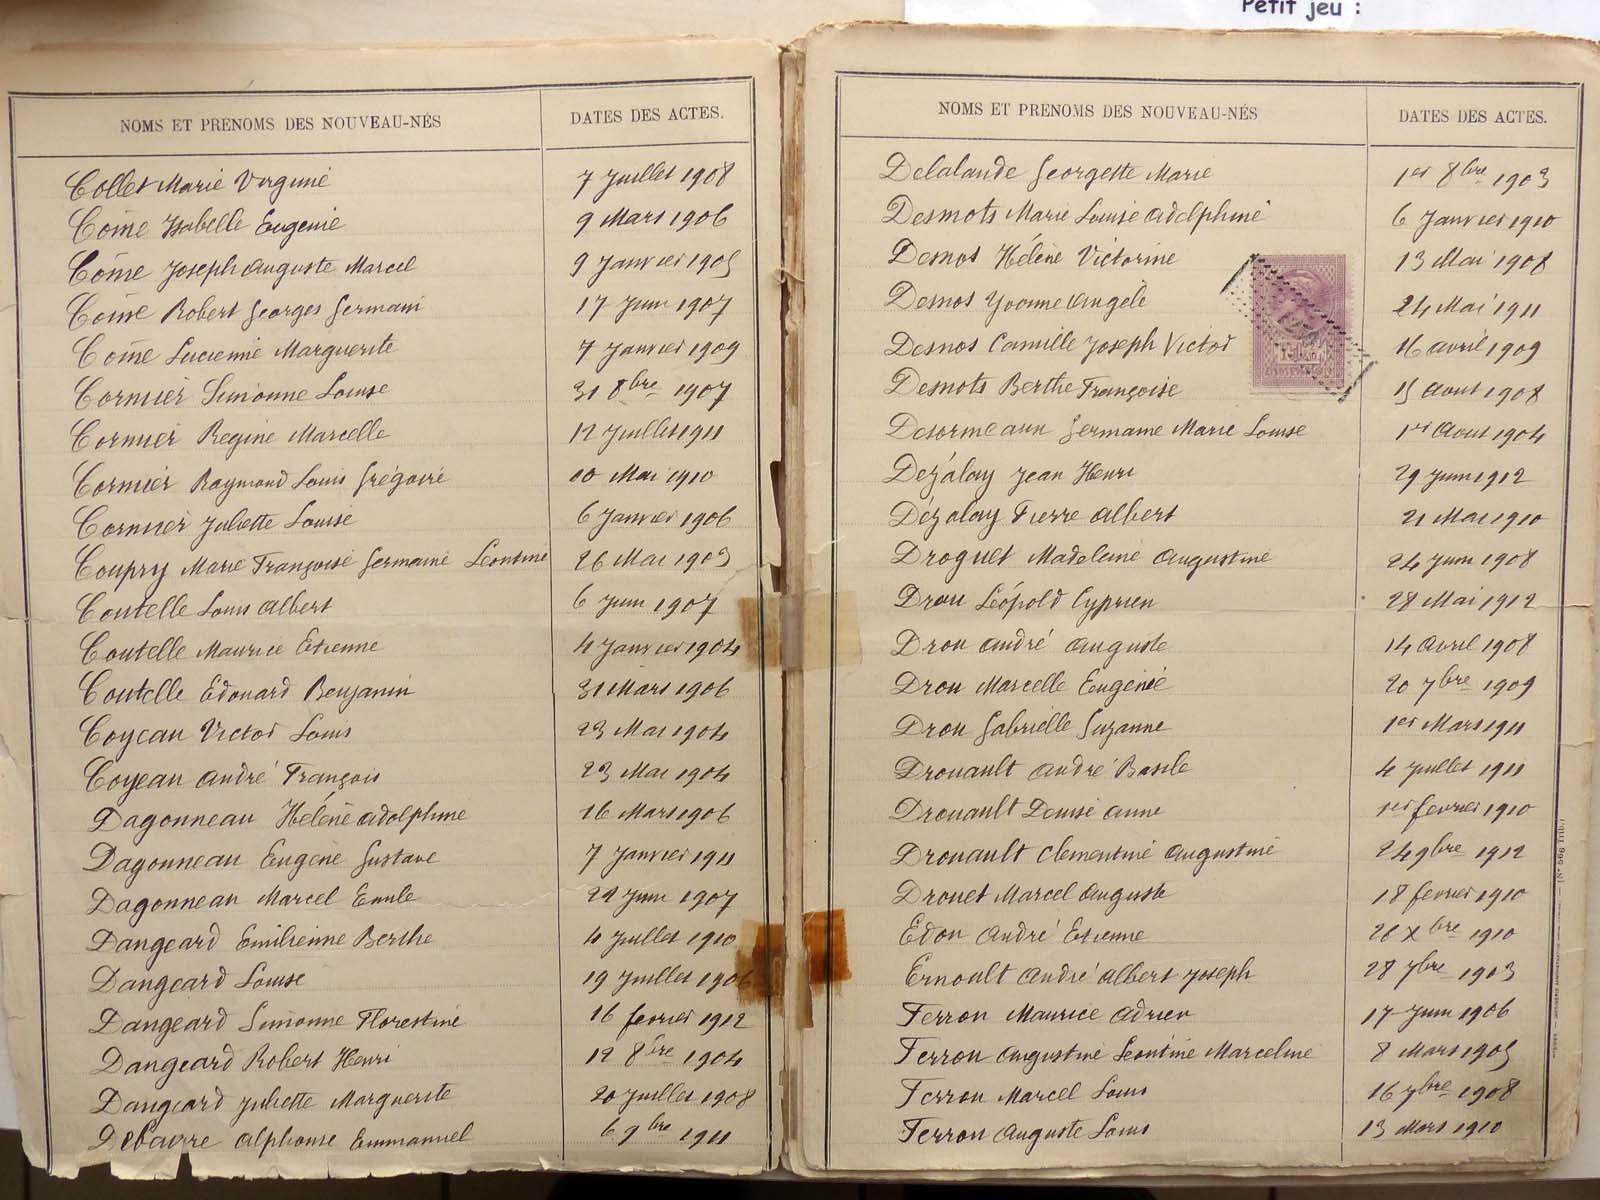 Petit jeu :
NOMS ET PRENOMS DES NOUVEAU-NÉS DATES DES ACTES.
Collet Marie Virginie 7 Juillet 1908
Côme Isabelle Eugenie 9 Mars 1906
Côme Joseph Auguste Marcel 9 Janvier 1905
Côme Robert Georges Germain 17 Juin 1907
Côme Lucienne Marguerite 7 Janvier 1909
Cormier Simonne Louise 31 8bre 1907
Cormier Regine Marcelle 12 Juillet 1911
Cormier Raymond Louis Grégoire 10 Mai 1910
Cormier Juliette Louise 6 Janvier 1906
Coupry Marie Françoise Germaine Léontine 26 Mai 1903
Coutelle Louis Albert 6 Juin 1907
Coutelle Maurice Etienne 4 Janvier 1904
Coutelle Edouard Benjamin 31 Mars 1906
Coyeau Victor Louis 23 Mai 1904
Coyeau André François 23 Mai 1904
Dagonneau Hélène Adolphine 16 Mars 1906
Dagonneau Eugène Gustave 7 Janvier 1911
Dagonneau Marcel Emile Juin 1907
Dangeard Emilienne Berthe 4 Juillet 1910
Dangeard Louise 19 Juillet 1906
Dangeard Simonne Florestine 16 fevrier 1912
Dangeard Robert Henri 12 8bre 1904
Dangeard Juliette Marguerite 20 Juillet 1908
Alphonse Emmanuel 6 9bre 1911
NOMS ET PRENOMS DES NOUVEAU-NÉS DATES DES ACTES.
Delalande Georgette Marie 1er 8bre 1903
Desmots Marie Louise Adolphine 6 Janvier 1910
Desnos Hélène Victorine 13 Mai 1908
Desnos Yvonne Angèle 24 Mai 1911
Desnos Camille Joseph Victor 16 avril 1909
Desmots Berthe Françoise 15 Aout 1908
Desormeaux Germaine Marie Louise 1er Aout 1904
Dezalay Jean Henri 29 Juin 1912
Dézalay Pierre Albert 21 Mai 1910
Droguet Madeleine Augustine 24 Juin 1908
Drou Léopold Cyprien 28 Mai 1912
Drou André Auguste 14 Avril 1908
Drou Marcelle Eugénie 20 7bre 1909
Drou Gabrielle Suzanne 1er Mars 1911
Drouault André Basile 4 Juillet 1911
Drouault Denise Anne 1er fevrier 1910
Drouault Clementine Augustine 24 9bre 1912
Drouet Marcel Auguste 18 fevrier 1910
Edon André Etienne 26 Xbre 1910
Ernoult André Albert Joseph 28 7bre 1903
Ferron Maurice Adrien 17 Juin 1906
Ferron Augustine Léontine Marceline 8 Mars 1905
Ferron Marcel Louis 16 7bre 1908
Ferron Auguste Louis 13 Mars 1910